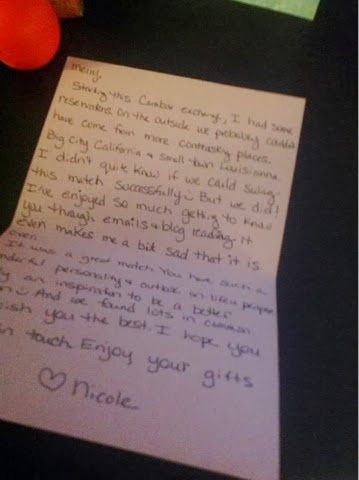 merry.
Starting this Carebox exchange, I had some
reservations on the outside we probably couldn't
have come from more contrasting places.
Big city California & small town Louisianna.
I didn't quite know if we could swing
this match successfully. But we did!
I've enjoyed so much getting to know
you though emails & blog reading. It
even makes me a bit sad that it is
over.
It was a great match. You have such a
nderful personality & outlook on life
an inspiration to be a better
And we found lots in common
ish you the best. I hope you
in touch. Enjoy your gifts
♡ Nicole